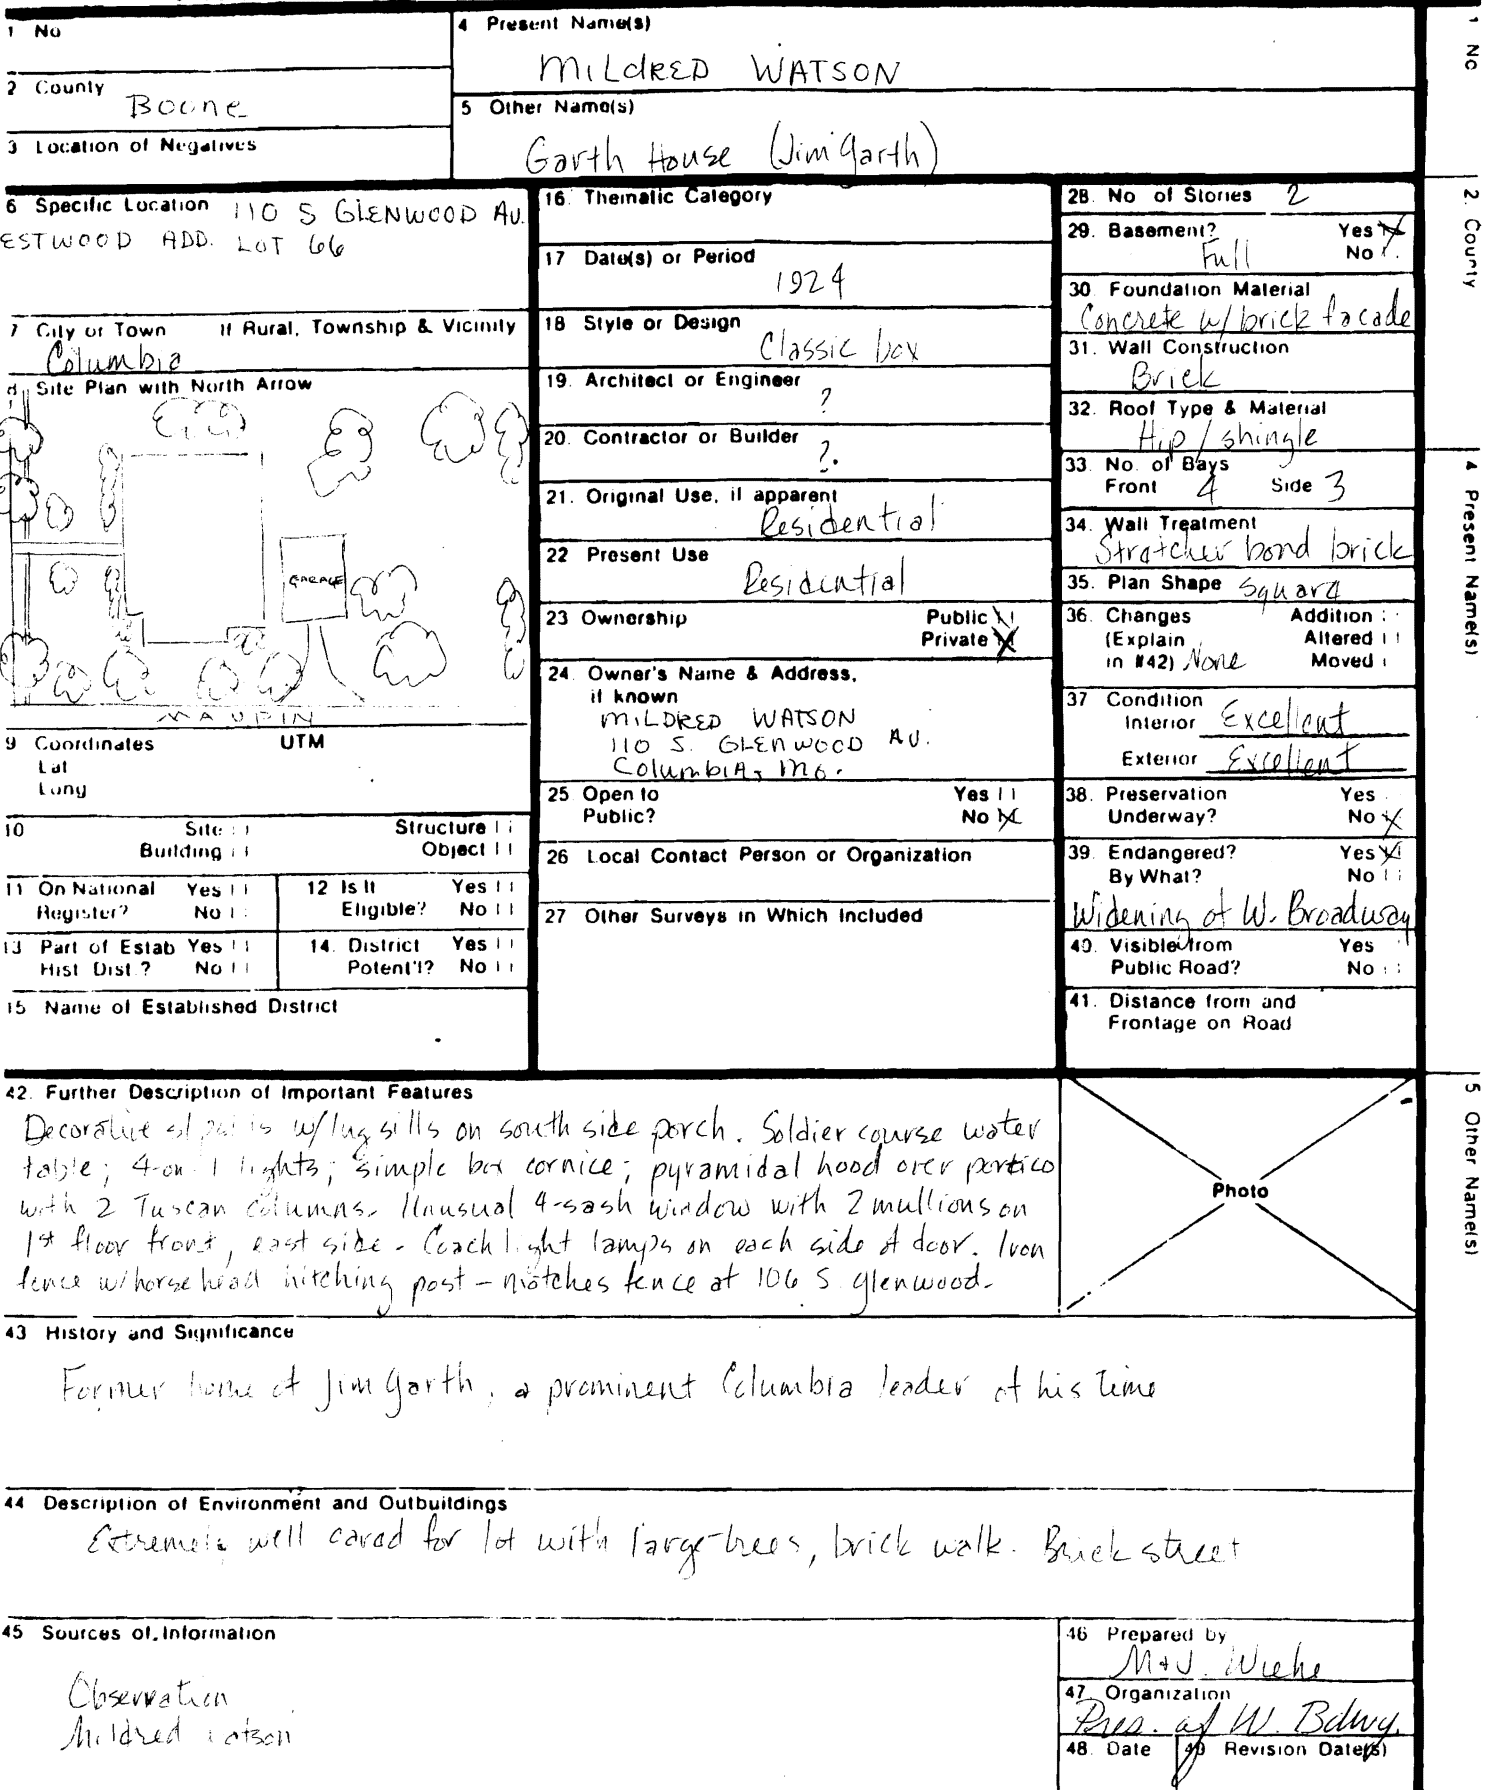 1 No
4 Present Name(s)
MILdRED WATSON
2 County
Boone
5 Other Name(s)
Garth House (Jim Garth)
3 Location of Negatives
6 Specific Location 110 S GLENWOOD AV.
ESTWOOD ADD. LOT 66
7 City or Town If Rural, Township & Vicinity
Columbia
8 Site Plan with North Arrow
GARAGE
MAUPIN
9 Coordinates UTM
Lat
Long
10 Site
Structure
Building
Object
11 On National Register? Yes No
12 Is It Eligible? Yes No
13 Part of Estab Hist Dist.? Yes No
14. District Potent'l? Yes No
15 Name of Established District
16. Thematic Category
17 Date(s) or Period
1924
18 Style or Design
Classic box
19. Architect or Engineer
?
20. Contractor or Builder
?.
21. Original Use, if apparent
Residential
22 Present Use
Residential
23 Ownership Public
Private X
24. Owner's Name & Address,
if known
MILDRED WATSON
110 S. GLENWOOD AV.
ColumbiA, Mo.
25 Open to Yes
Public? No X
26 Local Contact Person or Organization
27 Other Surveys in Which Included
28. No of Stories 2
29. Basement? Yes X
Full No
30. Foundation Material
Concrete w/ brick facade
31. Wall Construction
Brick
32. Roof Type & Material
Hip / shingle
33. No. of Bays
Front 4 Side 3
34. Wall Treatment
Stratcher bond brick
35. Plan Shape Square
36. Changes Addition
(Explain Altered
in #42) None Moved
37 Condition
Interior Excellent
Exterior Excellent
38. Preservation Yes
Underway? No X
39. Endangered? Yes X
By What? No
Widening of W. Broadway
40. Visible from Yes
Public Road? No
41. Distance from and
Frontage on Road
42. Further Description of Important Features
Decorative w/lug sills on south side porch. Soldier course water
table; 4-on-1 lights; simple box cornice; pyramidal hood over portico
with 2 Tuscan columns. Unusual 4-sash window with 2 mullions on
1st floor front, east side - Coach light lamps on each side of door. Iron
fence w/horse head hitching post - matches fence at 106 S. Glenwood.
Photo
43 History and Significance
Former home of Jim Garth, a prominent Columbia leader of his time
44 Description of Environment and Outbuildings
Extremely well cared for lot with large trees, brick walk. Brick street
45 Sources of Information
Observation
Mildred Watson
46 Prepared by
M+J. Wiehe
47 Organization
Pres. of W. Bdwy.
48. Date 49 Revision Date(s)
1 No
2. County
4 Present Name(s)
5 Other Name(s)